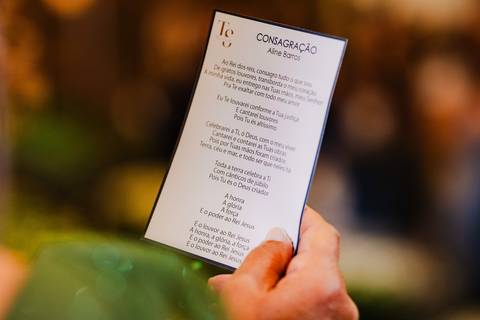 Tg
CONSAGRAÇÃO
Aline Barros
Ao Rei dos reis, consagro tudo o que sou
De gratos louvores, transborda o meu coração
A minha vida, eu entrego nas Tuas mãos, meu Senhor
Pra Te exaltar com todo meu amor
Eu Te louvarei conforme a Tua justiça
E cantarei louvores
Pois Tu és altíssimo
Celebrarei a Ti, ó Deus, com o meu viver
Cantarei e contarei as Tuas obras
Pois por Tuas mãos foram criados
Terra, céu e mar, e todo ser que neles há
Toda a terra celebra a Ti
Com cânticos de júbilo
Pois Tu és o Deus criador
A honra
A glória
A força
E o poder ao Rei Jesus
E o louvor ao Rei Jesus
A honra, a glória, a força
E o poder ao Rei Jesus
E o louvor ao Rei Jesus